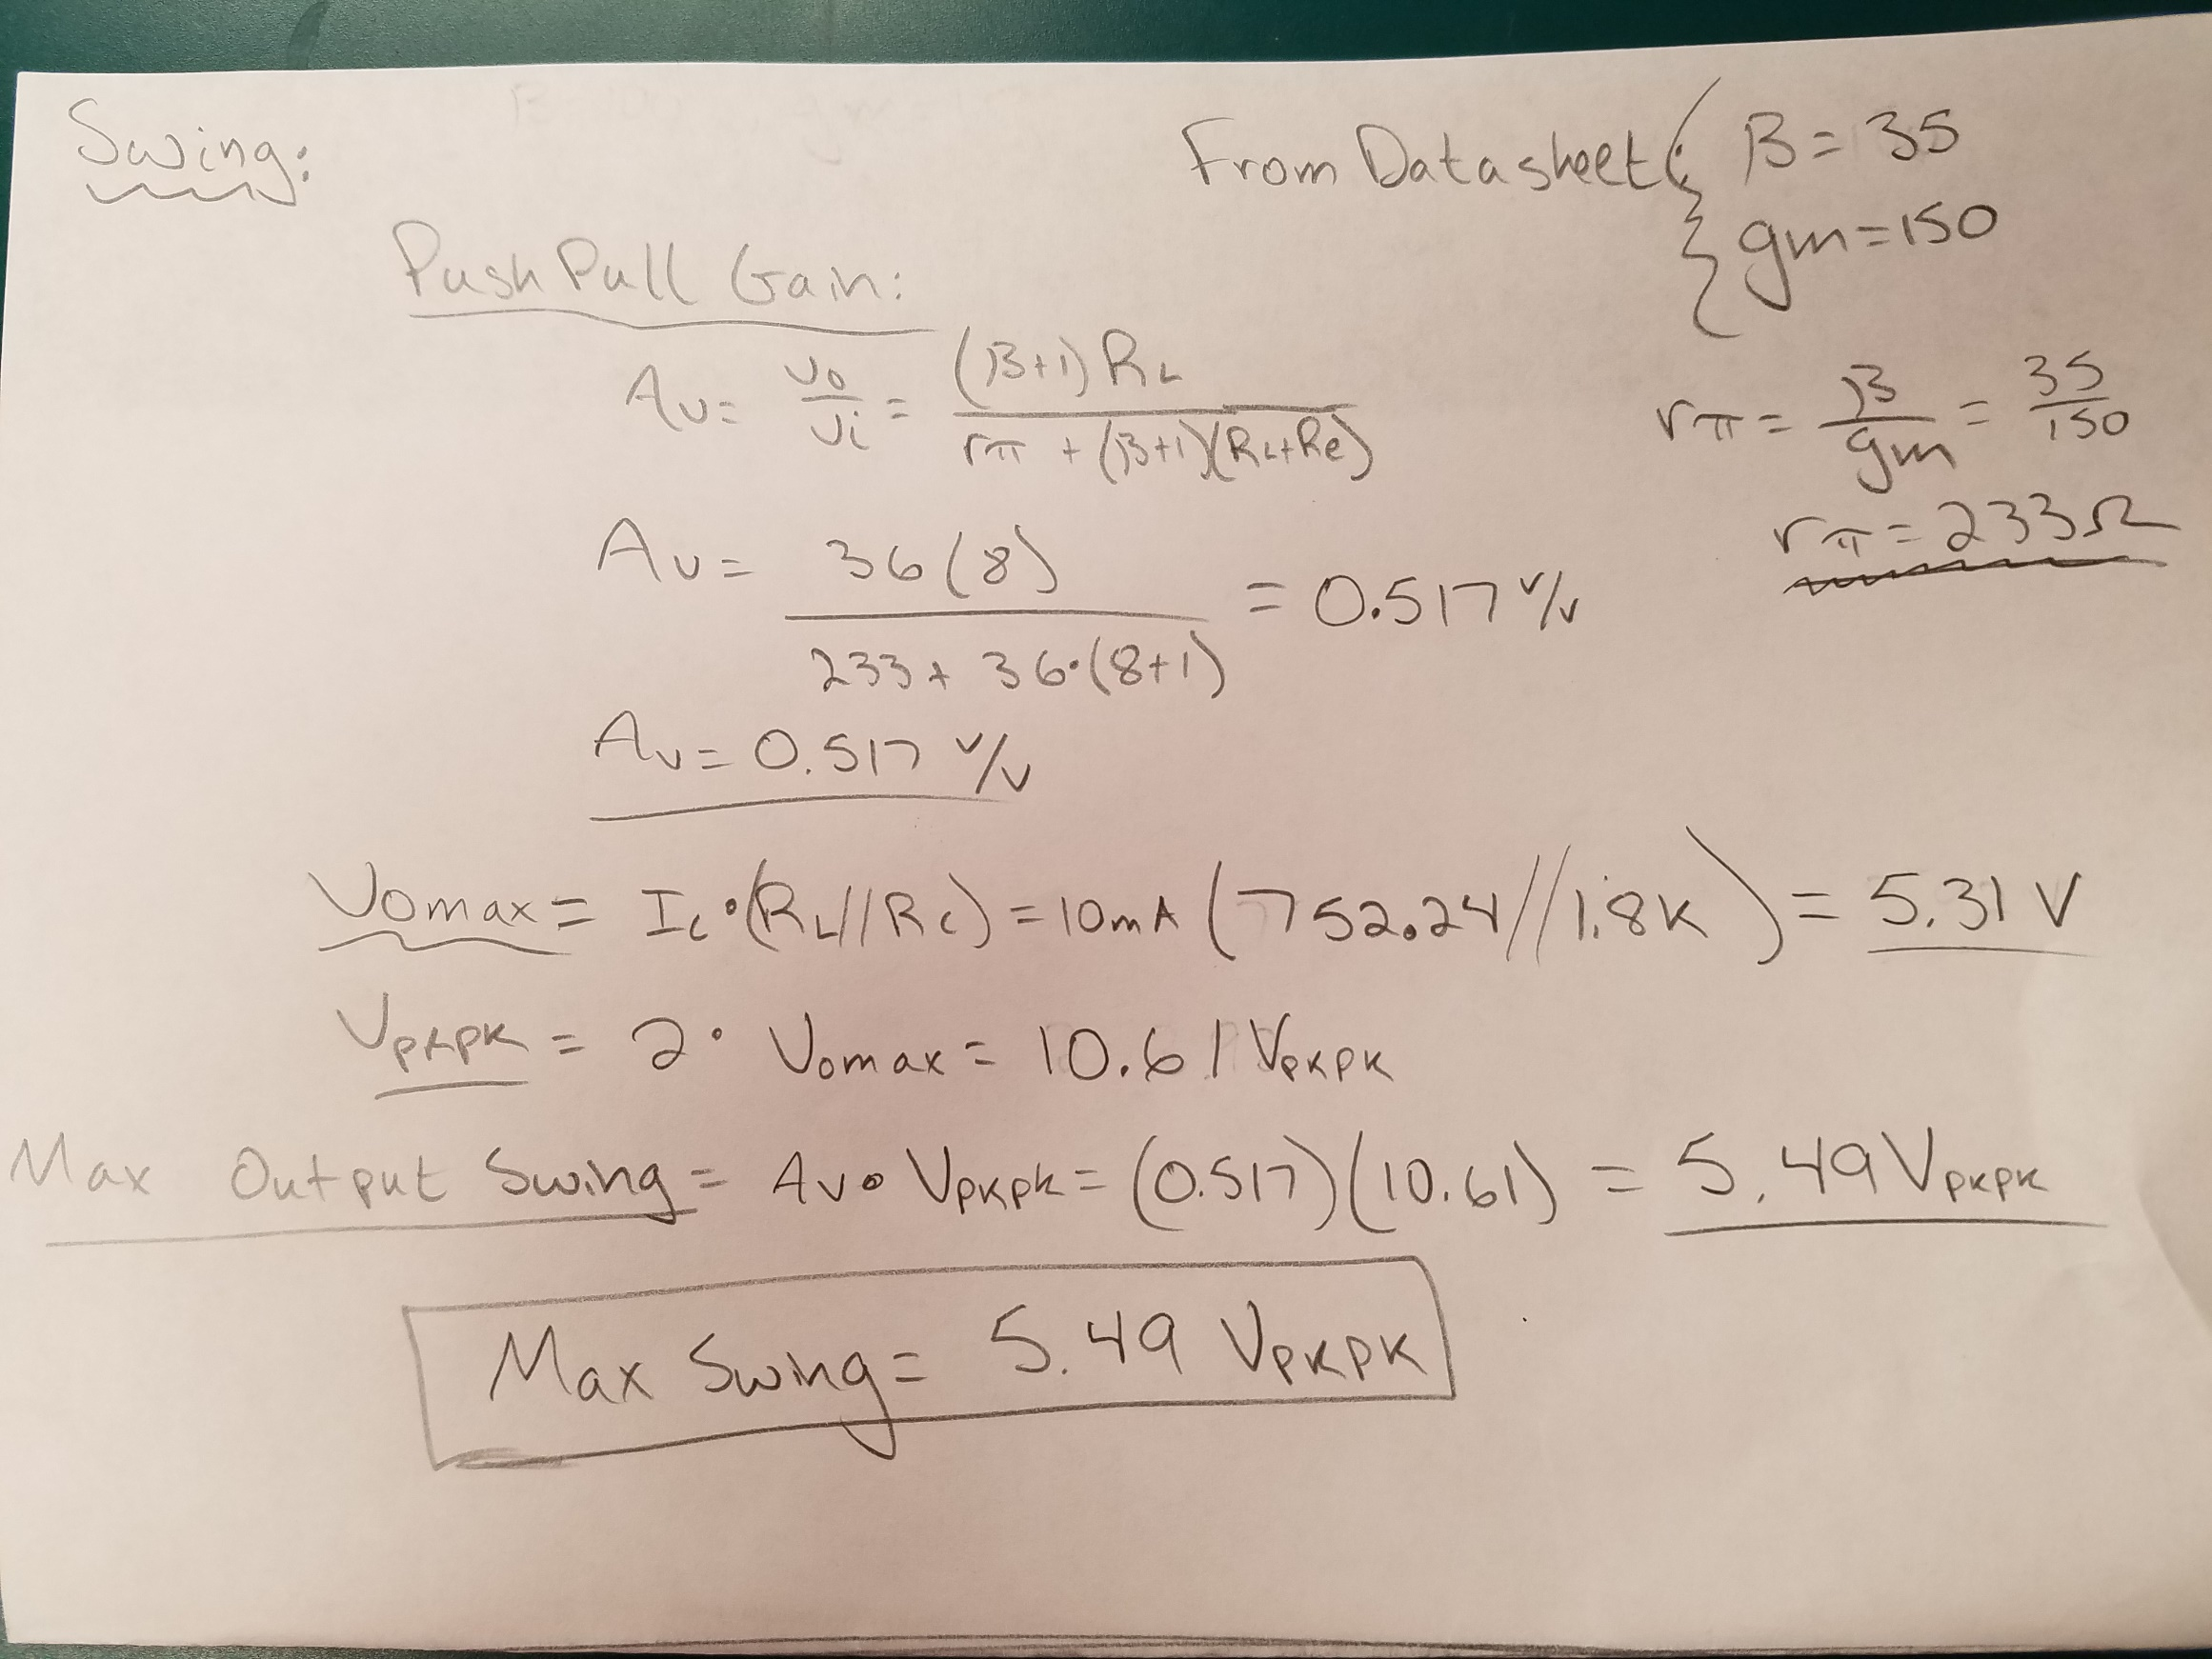 Swing:
From Datasheet: { B = 35
{ gm = 150
Push Pull Gain:
Av = vo/vi = (B+1) RL / rπ + (B+1)(RL+Re)
rπ = B/gm = 35/150
rπ = 233Ω
Av = 36(8) / 233 + 36·(8+1) = 0.517 v/v
Av = 0.517 v/v
Vomax = Ic·(RL//Rc) = 10mA (752.24//1.8K) = 5.31 V
Vpkpk = 2· Vomax = 10.61 Vpkpk
Max Output Swing = Av· Vpkpk = (0.517)(10.61) = 5.49 Vpkpk
Max Swing = 5.49 Vpkpk